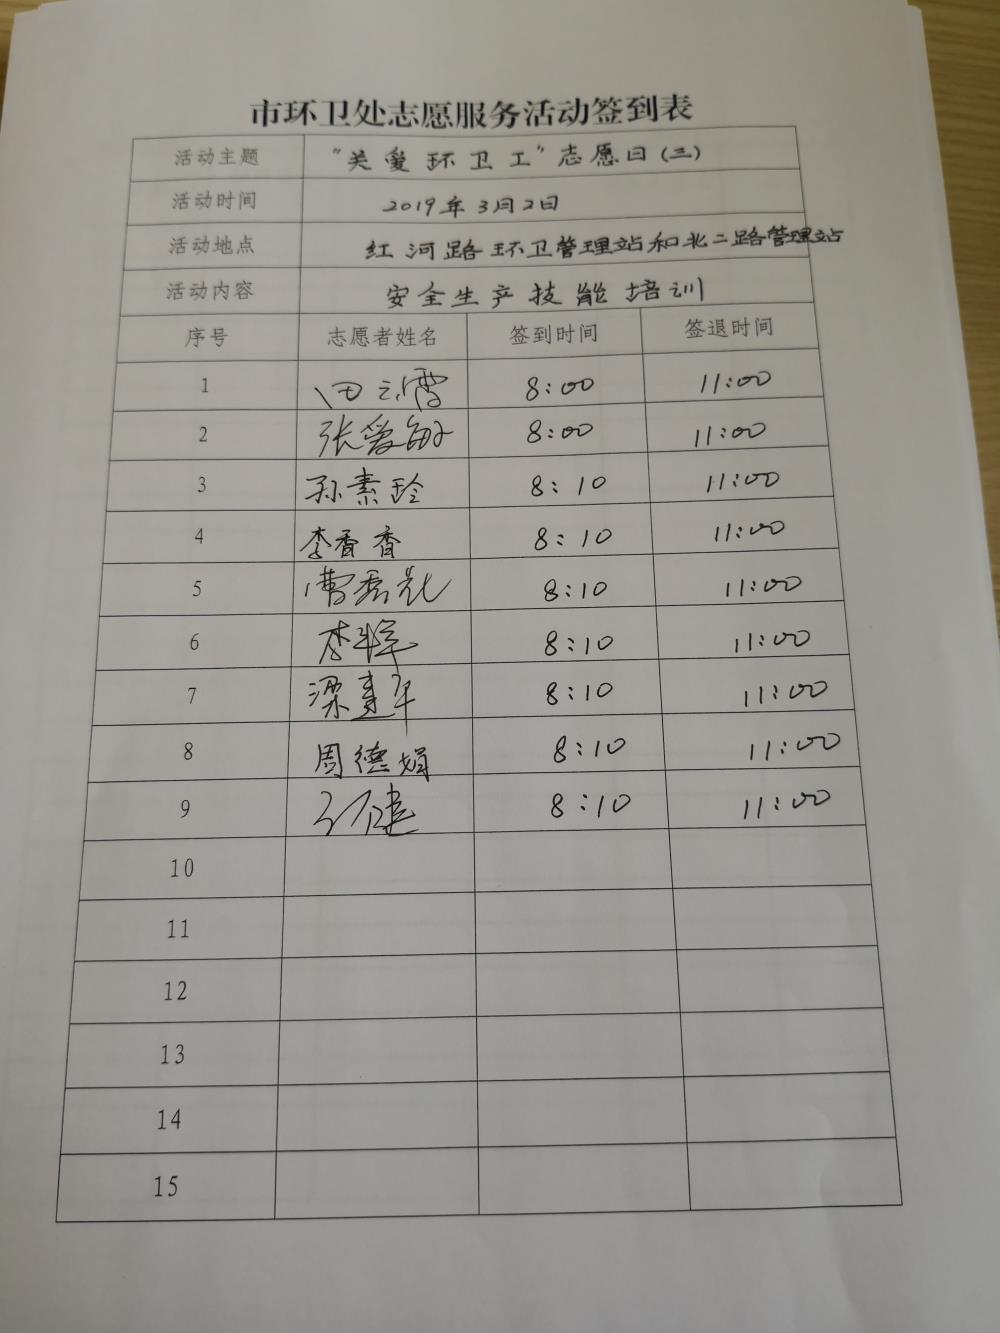 市环卫处志愿服务活动签到表
活动主题 “关爱环卫工”志愿日(三)
活动时间 2019年3月2日
活动地点 红河路环卫管理站和北二路管理站
活动内容 安全生产技能培训
序号 志愿者姓名 签到时间 签退时间
1 田云霄 8:00 11:00
2 张爱敏 8:00 11:00
3 孙素玲 8:10 11:00
4 李香香 8:10 11:00
5 曹秀 8:10 11:00
6 李 8:10 11:00
7 梁建军 8:10 11:00
8 周德娟 8:10 11:00
9 健 8:10 11:00
10
11
12
13
14
15